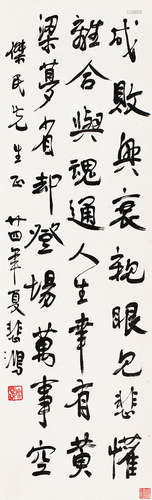 成敗興衰親眼見悲懽
離合與魂通人生幸有黃
梁夢省却登場萬事空
傑民先生正 廿四年夏悲鴻